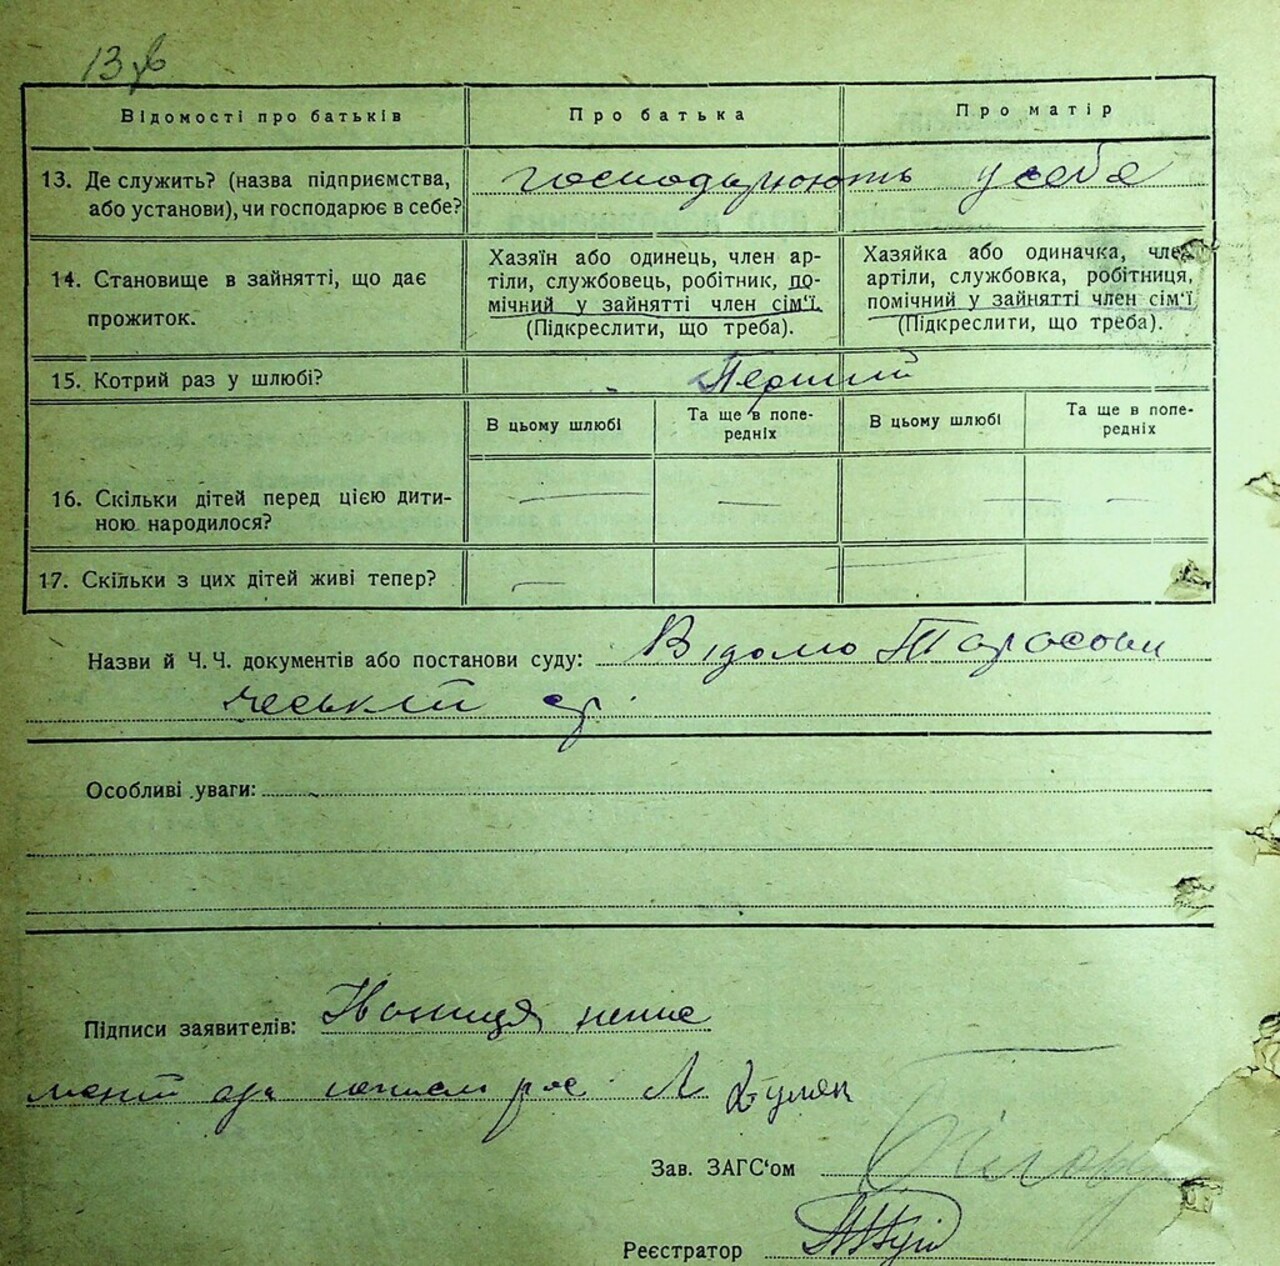 13
Відомості про батьків
Про батька
Про матір
13. Де служить? (назва підприємства,
або установи), чи господарює в себе?
господарюють у себе
14. Становище в зайнятті, що дає
прожиток.
Хазяїн або одинець, член ар-
тіли, службовець, робітник, по-
мічний у зайнятті член сім‘ї.
(Підкреслити, що треба).
Хазяйка або одиначка, член
артіли, службовка, робітниця,
помічний у зайнятті член сім‘ї
(Підкреслити, що треба).
15. Котрий раз у шлюбі?
Перший
В цьому шлюбі
Та ще в попе-
редніх
В цьому шлюбі
Та ще в попе-
редніх
16. Скільки дітей перед цією дити-
ною народилося?
17. Скільки з цих дітей живі тепер?
Назви й Ч. Ч. документів або постанови суду: Відомо Тарасови
чеській ср.
Особливі уваги:
Підписи заявителів:
Зав. ЗАГС‘ом
Реєстратор